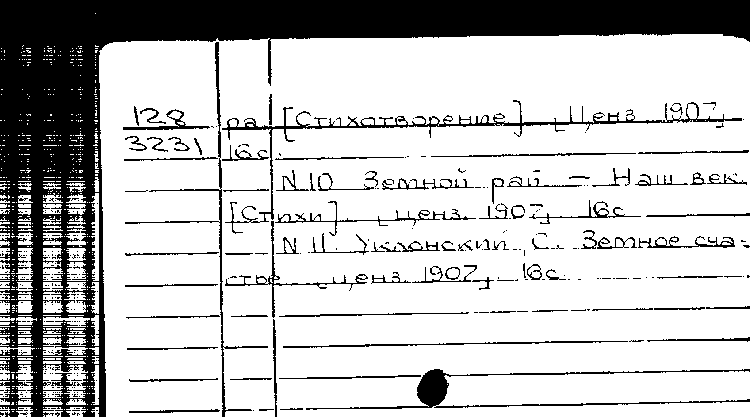 128 ра [Стихотворение] ⌞Ценз. 1907⌟
3231 16с.
N 10 Земной рай – Наш век.
[Стихи] ⌞ценз. 1907⌟ 16с
N 11. Уклонский, С. Земное сча-
стье ⌞ценз. 1907⌟ 16с